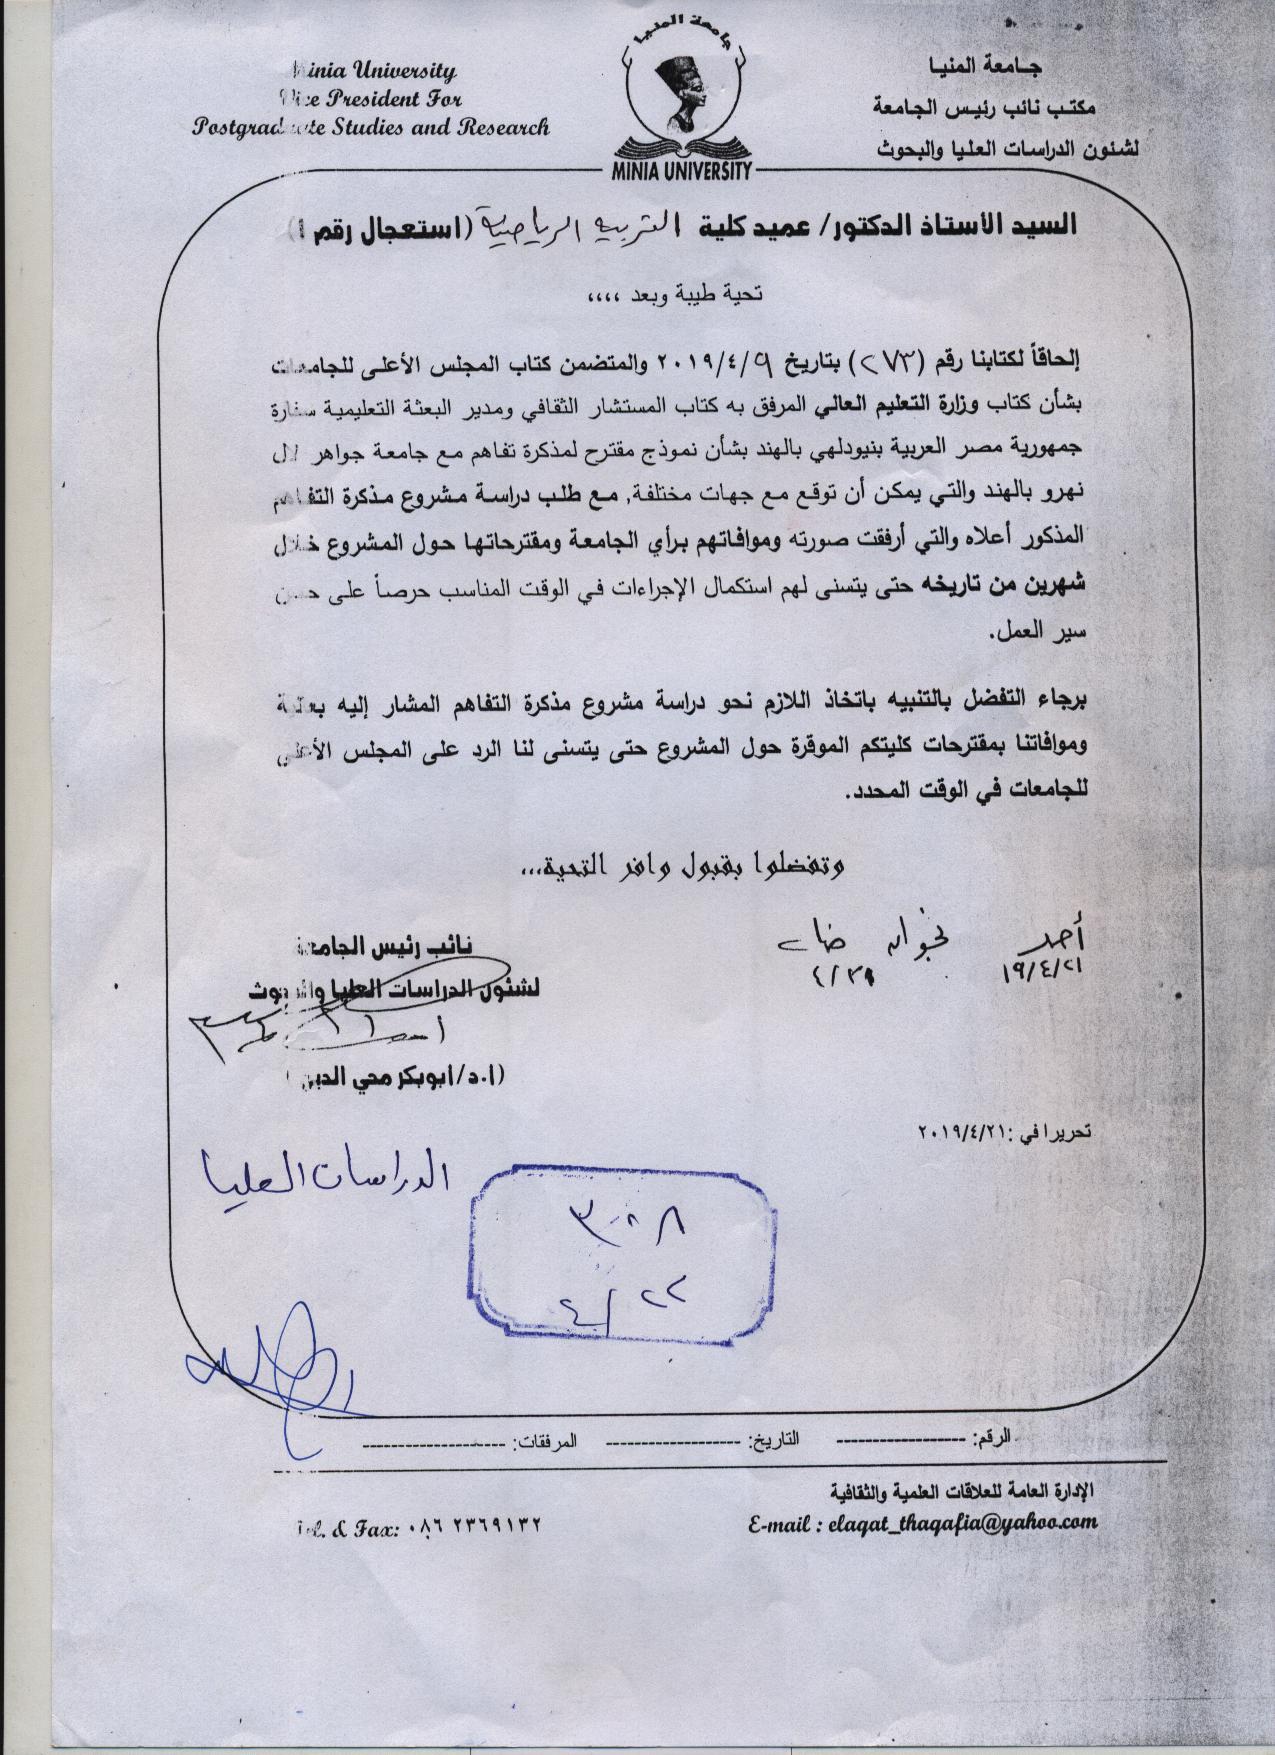 Minia University
Vice President For
Postgraduate Studies and Research
جامعة المنيا
MINIA UNIVERSITY
جـامعة المنيـا
مكتـب نائـب رئيـس الجـامعة
لشئون الدراسات العليا والبحوث
السيد الأستاذ الدكتور/ عميد كلية التربيه الرياضية (استعجال رقم ١)
تحية طيبة وبعد ،،،،
إلحاقاً لكتابنا رقم (٢٧٣) بتاريخ ٢٠١٩/٤/٩ والمتضمن كتاب المجلس الأعلى للجامعات
بشأن كتاب وزارة التعليم العالي المرفق به كتاب المستشار الثقافي ومدير البعثة التعليمية سفارة
جمهورية مصر العربية بنيودلهي بالهند بشأن نموذج مقترح لمذكرة تفاهم مع جامعة جواهر لال
نهرو بالهند والتي يمكن أن توقع مع جهات مختلفة, مع طلب دراسة مشروع مذكرة التفاهم
المذكور أعلاه والتي أرفقت صورته وموافاتهم برأي الجامعة ومقترحاتها حول المشروع خلال
شهرين من تاريخه حتى يتسنى لهم استكمال الإجراءات في الوقت المناسب حرصاً على حسن
سير العمل.
برجاء التفضل بالتنبيه باتخاذ اللازم نحو دراسة مشروع مذكرة التفاهم المشار إليه بعناية
وموافاتنا بمقترحات كليتكم الموقرة حول المشروع حتى يتسنى لنا الرد على المجلس الأعلى
للجامعات في الوقت المحدد.
وتفضلوا بقبول وافر التحية...
أحمد
١٩/٤/٢١
نائب رئيس الجامعة
لشئون الدراسات العليا والبحوث
(أ.د/أبوبكر محي الدين)
تحريرا في :٢٠١٩/٤/٢١
الدراسات العليا
٣٠٠٨
٤/٢٢
الرقم: ------------------ التاريخ: ------------------- المرفقات: --------------------
الإدارة العامة للعلاقات العلمية والثقافية
E-mail : elaqat_thaqafia@yahoo.com
Tel. & Fax: ٠٨٦ ٢٣٦٩١٣٢